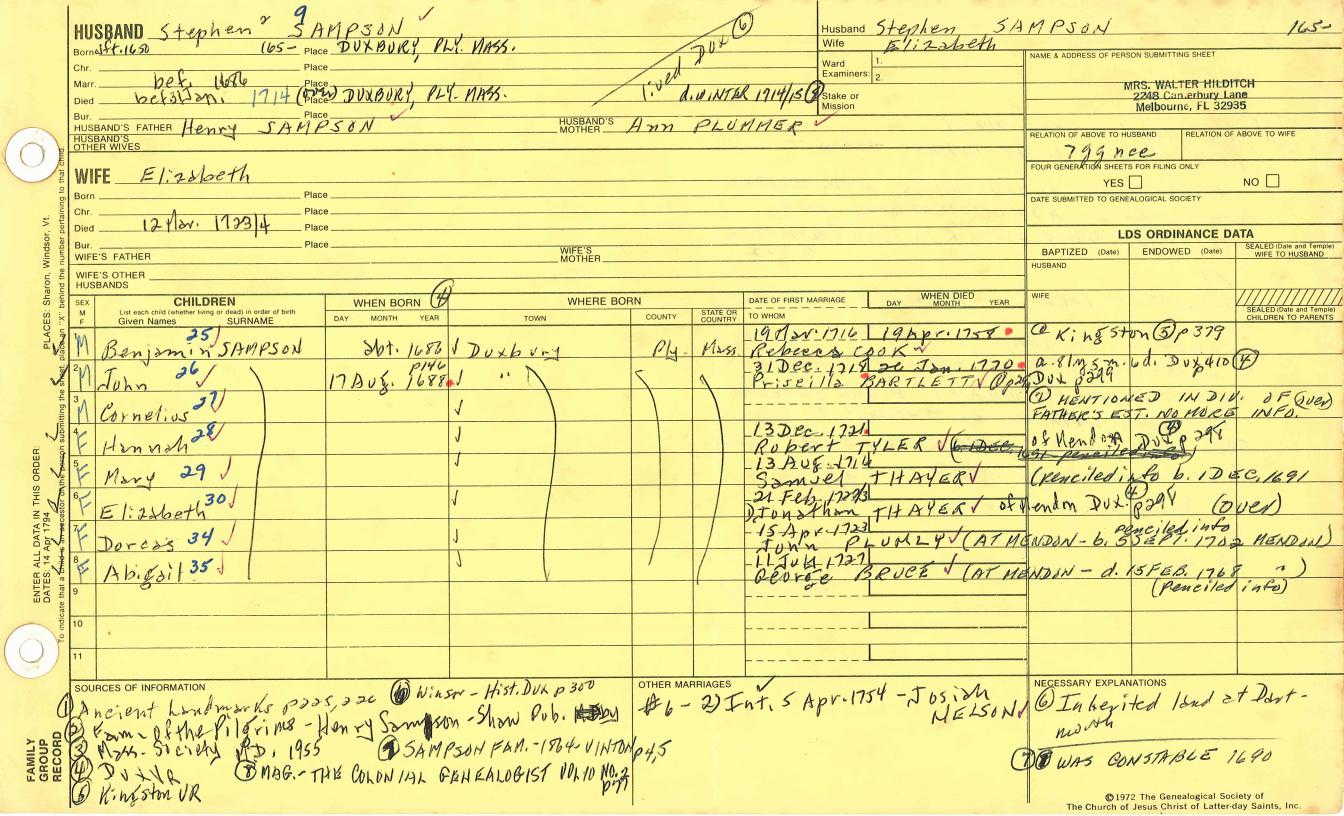 HUSBAND Stephen 2 9 SAMPSON
Born aft. 1650 165- Place DUXBURY, PLY. MASS.
Chr. Place
Marr. bef. 1686 Place
Died bef 3 Jan. 1714 (over) Place DUXBURY, PLY. MASS. d. WINTER 1714/15 8
Bur. Place
lived Dux 6
HUSBAND'S FATHER Henry SAMPSON HUSBAND'S MOTHER Ann PLUMMER
HUSBAND'S OTHER WIVES
Husband Stephen SAMPSON 165-
Wife Elizabeth
Ward Examiners: 1.
2.
Stake or Mission
NAME & ADDRESS OF PERSON SUBMITTING SHEET
MRS. WALTER HILDITCH
2248 Canterbury Lane
Melbourne, FL 32935
RELATION OF ABOVE TO HUSBAND RELATION OF ABOVE TO WIFE
7 gg nce
FOUR GENERATION SHEETS FOR FILING ONLY
YES NO
DATE SUBMITTED TO GENEALOGICAL SOCIETY
WIFE Elizabeth
Born Place
Chr. Place
Died 12 Mar. 1723/4 Place
Bur. Place
WIFE'S FATHER WIFE'S MOTHER
WIFE'S OTHER HUSBANDS
LDS ORDINANCE DATA
BAPTIZED (Date) ENDOWED (Date) SEALED (Date and Temple) WIFE TO HUSBAND
HUSBAND
WIFE
SEALED (Date and Temple) CHILDREN TO PARENTS
SEX M F
CHILDREN
List each child (whether living or dead) in order of birth
Given Names SURNAME
WHEN BORN 4
DAY MONTH YEAR
WHERE BORN
TOWN COUNTY STATE OR COUNTRY
DATE OF FIRST MARRIAGE
TO WHOM
WHEN DIED
DAY MONTH YEAR
M Benjamin SAMPSON 25 abt. 1686 Duxbury Ply. Mass
19 Mar. 1716 19 Apr. 1758
Rebecca COOK
@ Kingston 5 p 379
2 M John 26 17 Aug. 1688 p146 "
31 Dec. 1718 26 Jan. 1770
Priscilla BARTLETT
a. 81 y. 5m. 6d. Dux p410 4
Dux p299
3 M Cornelius 27
MENTIONED IN DIV. OF (over)
FATHER'S EST. NO MORE INFO.
4 F Hannah 28
13 Dec. 1721
Robert TYLER
of Mendon Dux p 298 4
5 F Mary 29
13 Aug. 1714
Samuel THAYER
(penciled info b. 1 DEC, 1691
6 F Elizabeth 30
21 Feb. 1722/3
Jonathan THAYER of Mendon Dux. 4 p298 (over)
7 F Dorcas 34
15 Apr. 1723
John PLUMLY (AT MENDON - b. 5 SEPT. 1702 MENDON)
penciled info
8 F Abigail 35
11 July 1727
George BRUCE (AT MENDON - d. 15 FEB. 1768 ")
(penciled info)
9
10
11
SOURCES OF INFORMATION
1 Ancient Landmarks p225, 226
2 Fam. of the Pilgrims - Henry Sampson - Shaw Pub.
3 Mass. Society M.D. 1955
4 Dux VR
5 Kingston VR
6 Winsor - Hist. Dux p 300
7 SAMPSON FAM. - 1864 - VINTON p 4,5
8 MAG. - THE COLONIAL GENEALOGIST VOL 10 NO. 2 p 77
OTHER MARRIAGES
#6 - 2) Int. 5 Apr. 1754 - Josiah
NELSON
NECESSARY EXPLANATIONS
6 Inherited land at Dart-
mouth
7 WAS CONSTABLE 1690
©1972 The Genealogical Society of
The Church of Jesus Christ of Latter-day Saints, Inc.
FAMILY GROUP RECORD
ENTER ALL DATA IN THIS ORDER:
DATES: 14 Apr 1794
PLACES: Sharon, Windsor, Vt.
To indicate that a child is an ancestor of the person submitting the sheet, place an "X" behind the number pertaining to that child.